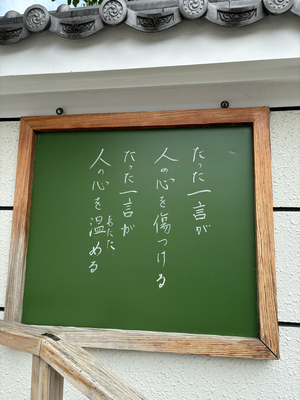 たった一言が
人の心を傷つける
たった一言が
人の心を温める
あたた